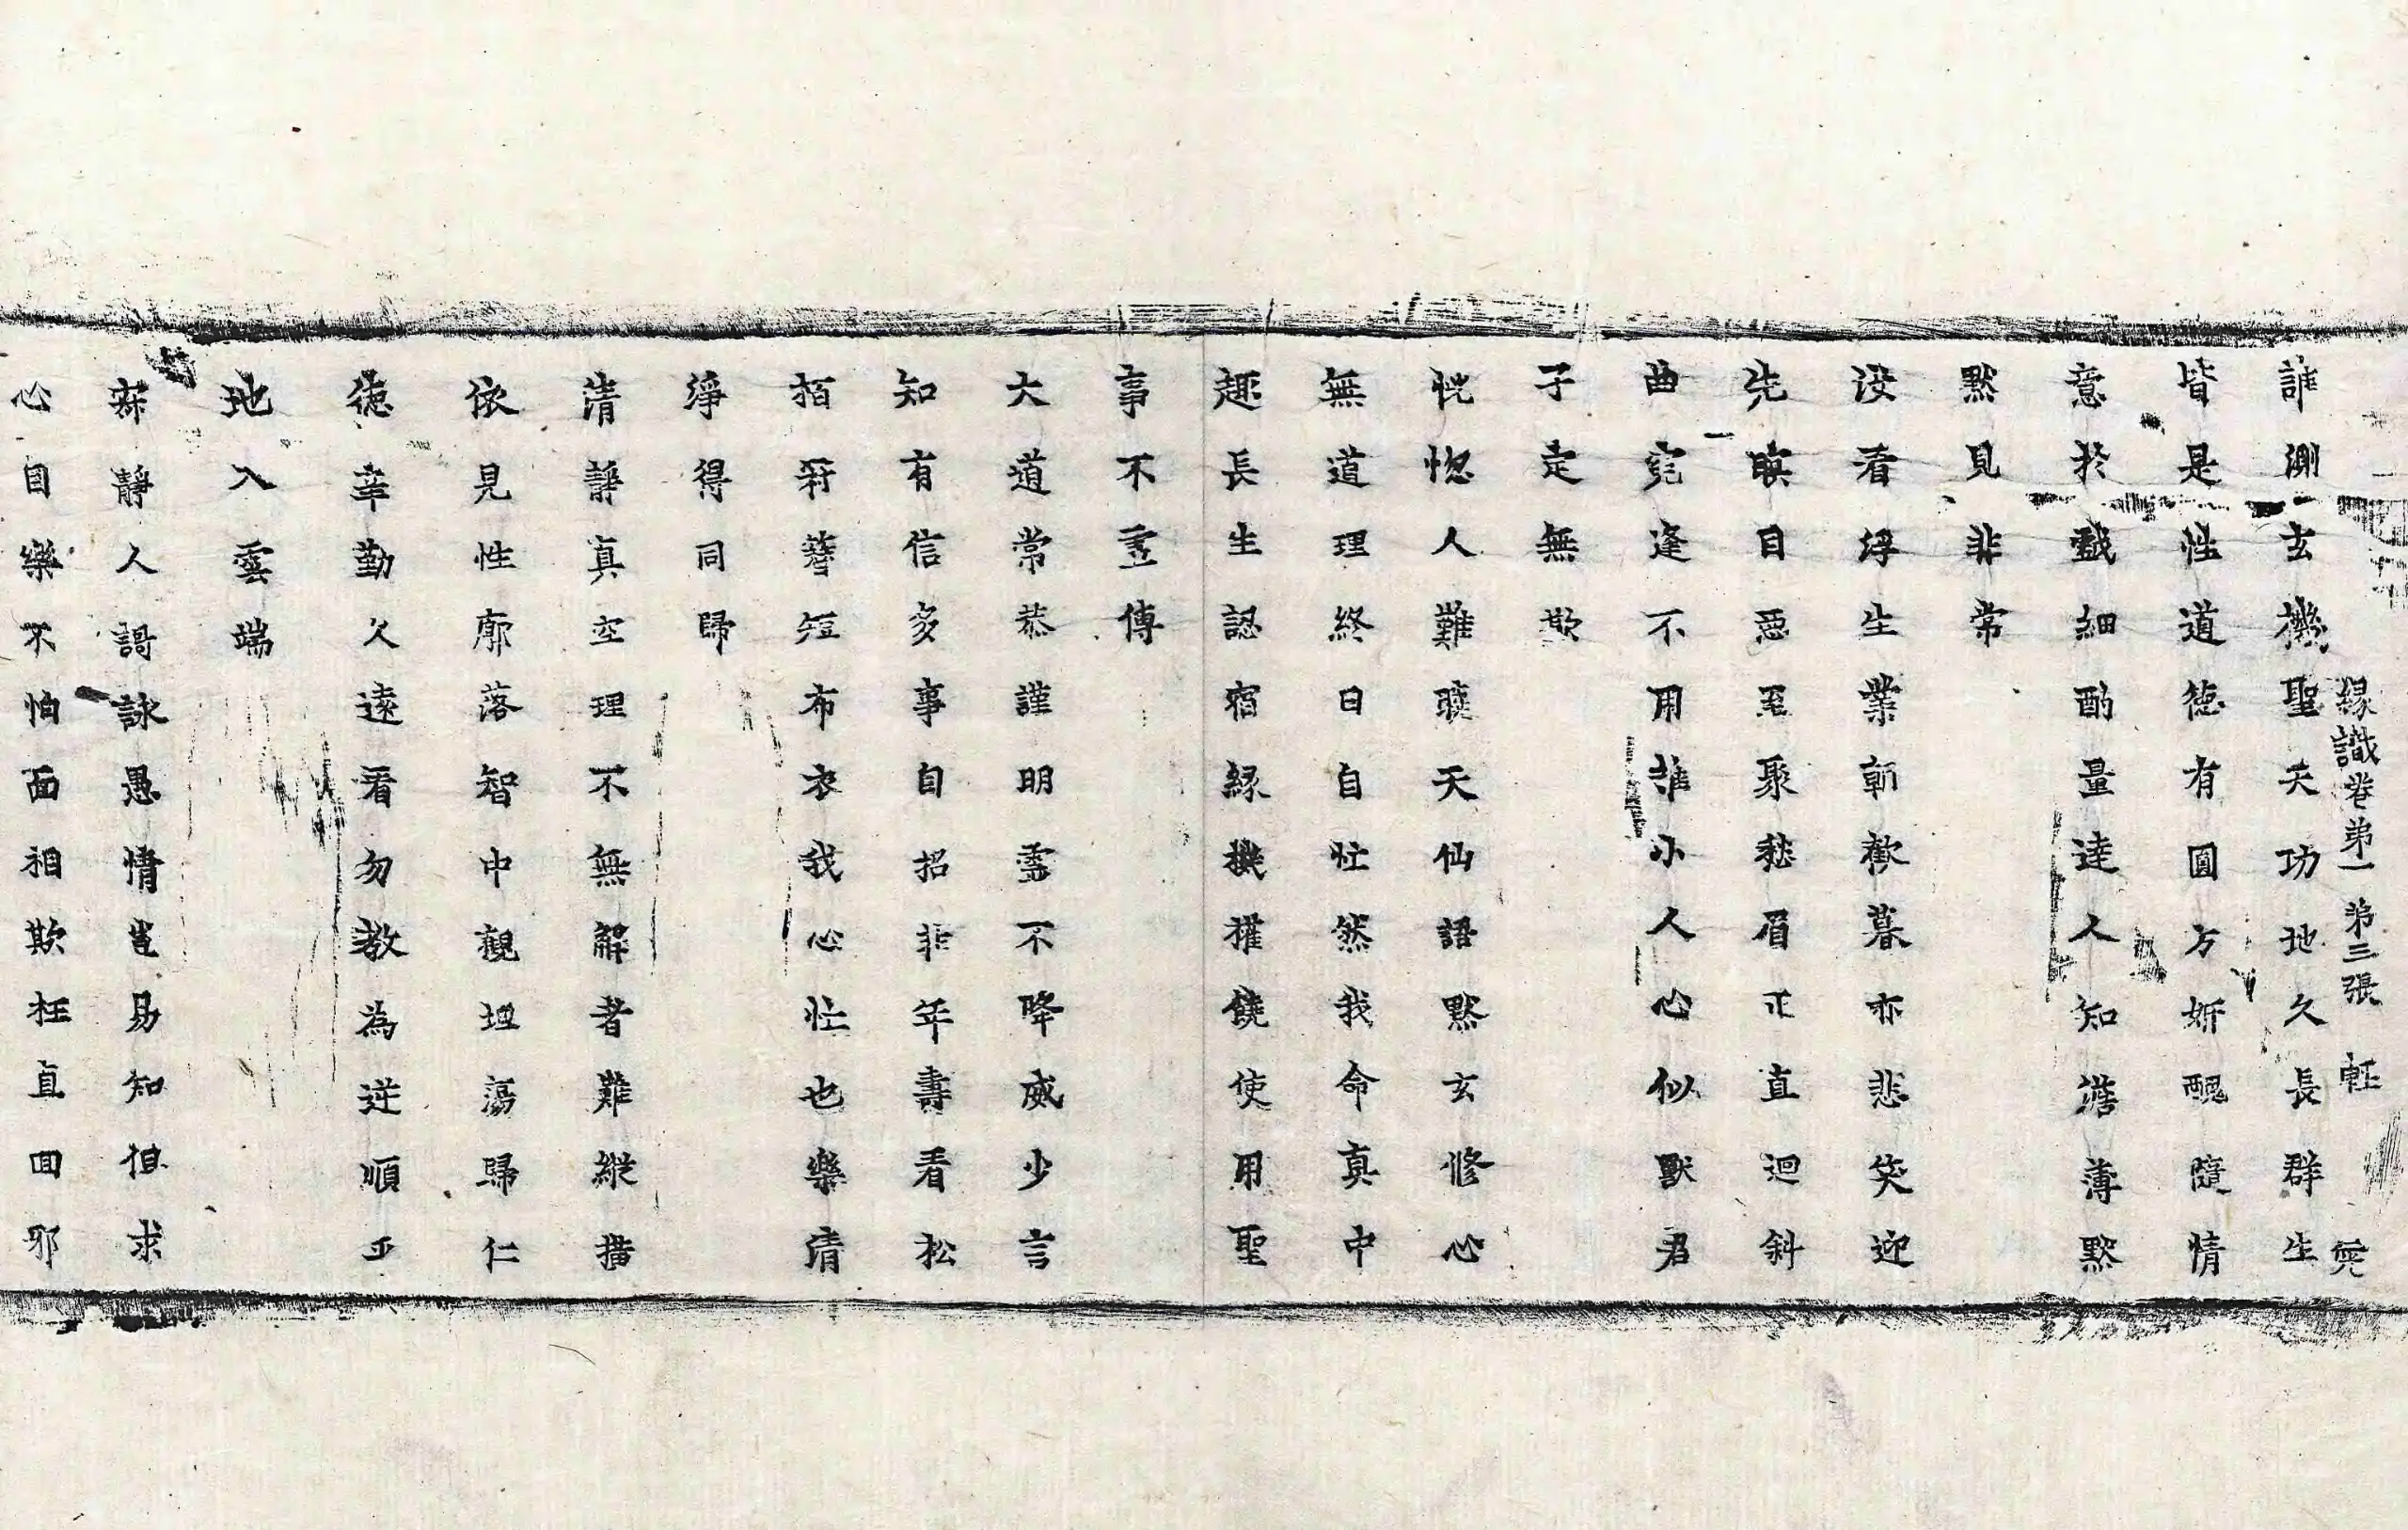 縁識卷弟一 第三張 軽
誰測玄機聖天功地久長群生
皆是性道徳有圓方妍醜隨情
意於戲細酌量達人知澹薄黙
黙見非常
没看浮生業朝歡暮亦悲笑迎
先瞋目惡至聚愁眉正直迴斜
曲寃逢不用誰小人心似獸君
子定無欺
恍惚人難職天仙語黙玄修心
無道理終日自忙然我命真中
趣長生認宿縁機權饒使用聖
事不虛傳
大道常恭謹明靈不降威少言
知有信多事自招非年壽看松
栢符簪短布衣我心忙也樂清
淨得同歸
清靜真空理不無解者難縱撗
依見性廓落智中觀坦蕩歸仁
徳辛勤久遠看勿教為逆順平
地入雲端
寂靜人謌詠愚情豈易知但求
心目樂不怕面相欺枉直回邪